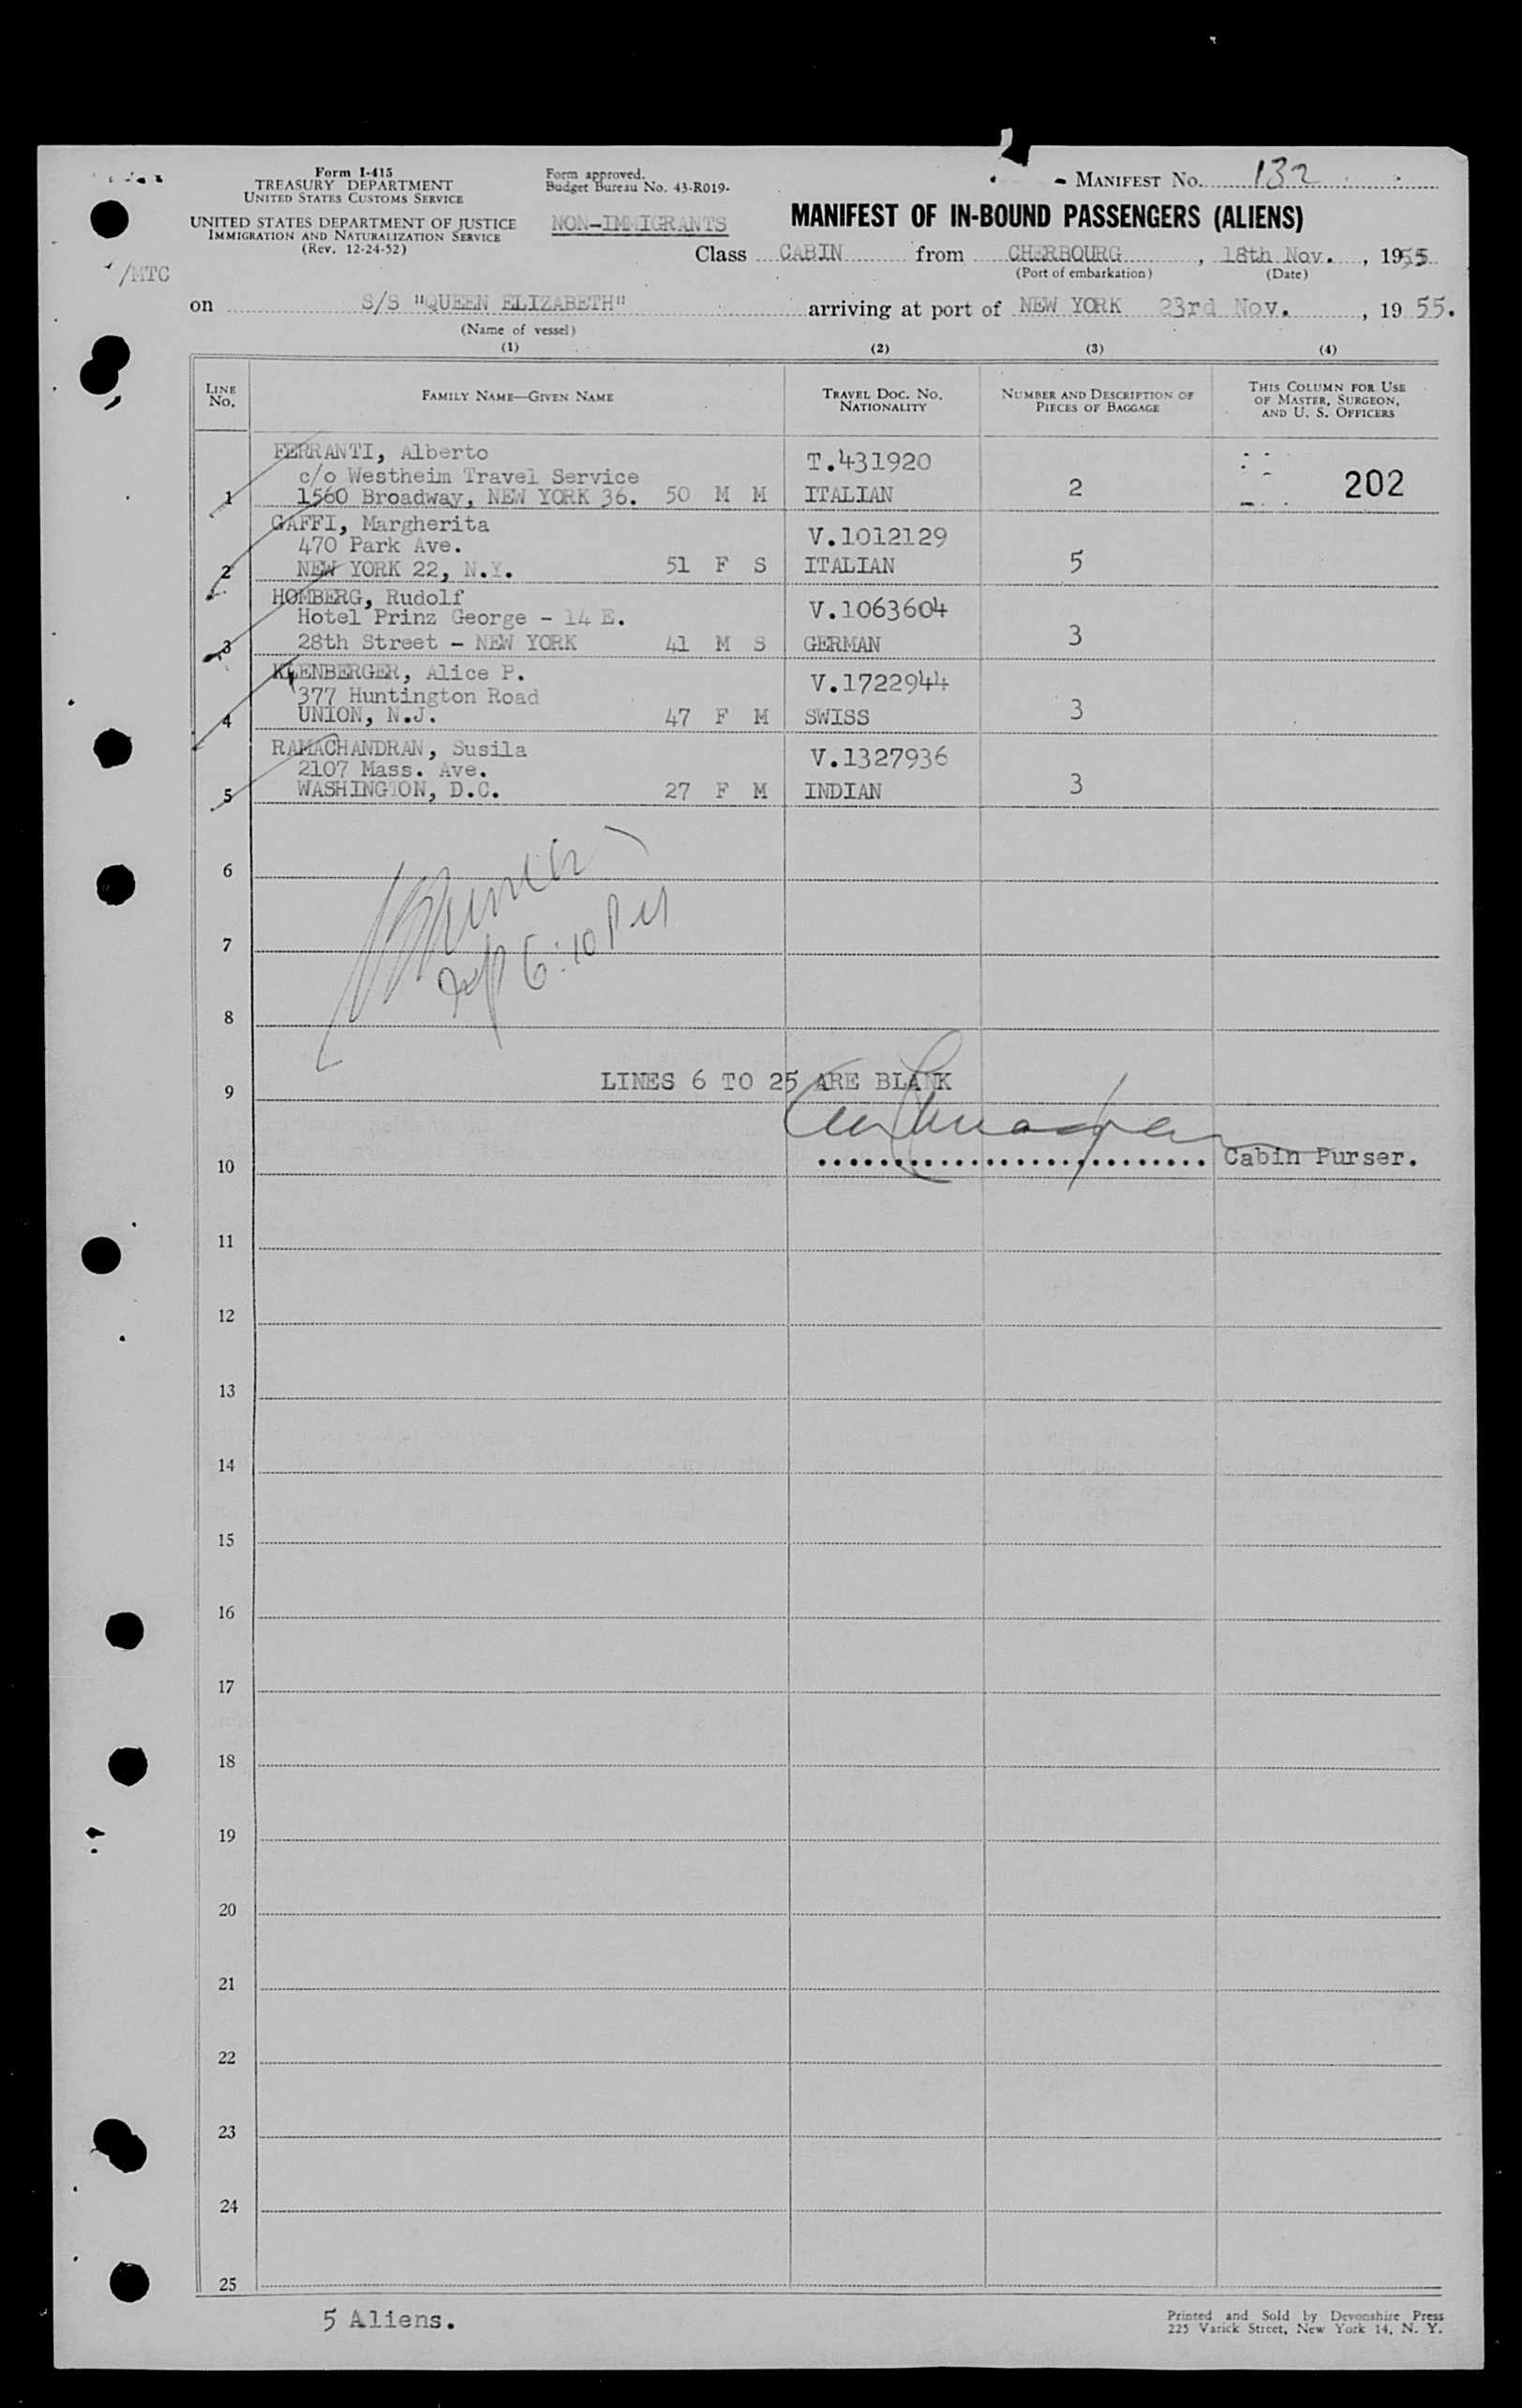 Form I-415
TREASURY DEPARTMENT
UNITED STATES CUSTOMS SERVICE
UNITED STATES DEPARTMENT OF JUSTICE
IMMIGRATION AND NATURALIZATION SERVICE
(Rev. 12-24-52)
/MTC
Form approved.
Budget Bureau No. 43-R019-
NON-IMMIGRANTS
- MANIFEST No. 132
MANIFEST OF IN-BOUND PASSENGERS (ALIENS)
Class CABIN from CHERBOURG, 18th Nov., 1955
(Port of embarkation) (Date)
on S/S "QUEEN ELIZABETH" arriving at port of NEW YORK 23rd Nov., 19 55.
(Name of vessel)
(1) (2) (3) (4)
LINE No. FAMILY NAME—GIVEN NAME TRAVEL DOC. NO. NATIONALITY NUMBER AND DESCRIPTION OF PIECES OF BAGGAGE THIS COLUMN FOR USE OF MASTER, SURGEON, AND U. S. OFFICERS
FERRANTI, Alberto T.431920
c/o Westheim Travel Service
1 1560 Broadway, NEW YORK 36. 50 M M ITALIAN 2 202
GAFFI, Margherita V.1012129
470 Park Ave.
2 NEW YORK 22, N.Y. 51 F S ITALIAN 5
HOMBERG, Rudolf V.1063604
Hotel Prinz George - 14 E.
3 28th Street - NEW YORK 41 M S GERMAN 3
KLENBERGER, Alice P. V.1722944
377 Huntington Road
4 UNION, N.J. 47 F M SWISS 3
RAMACHANDRAN, Susila V.1327936
2107 Mass. Ave.
5 WASHINGTON, D.C. 27 F M INDIAN 3
6
7
6:10 PM
8
LINES 6 TO 25 ARE BLANK
9
10 Cabin Purser.
11
12
13
14
15
16
17
18
19
20
21
22
23
24
25
5 Aliens.
Printed and Sold by Devonshire Press
225 Varick Street, New York 14, N. Y.